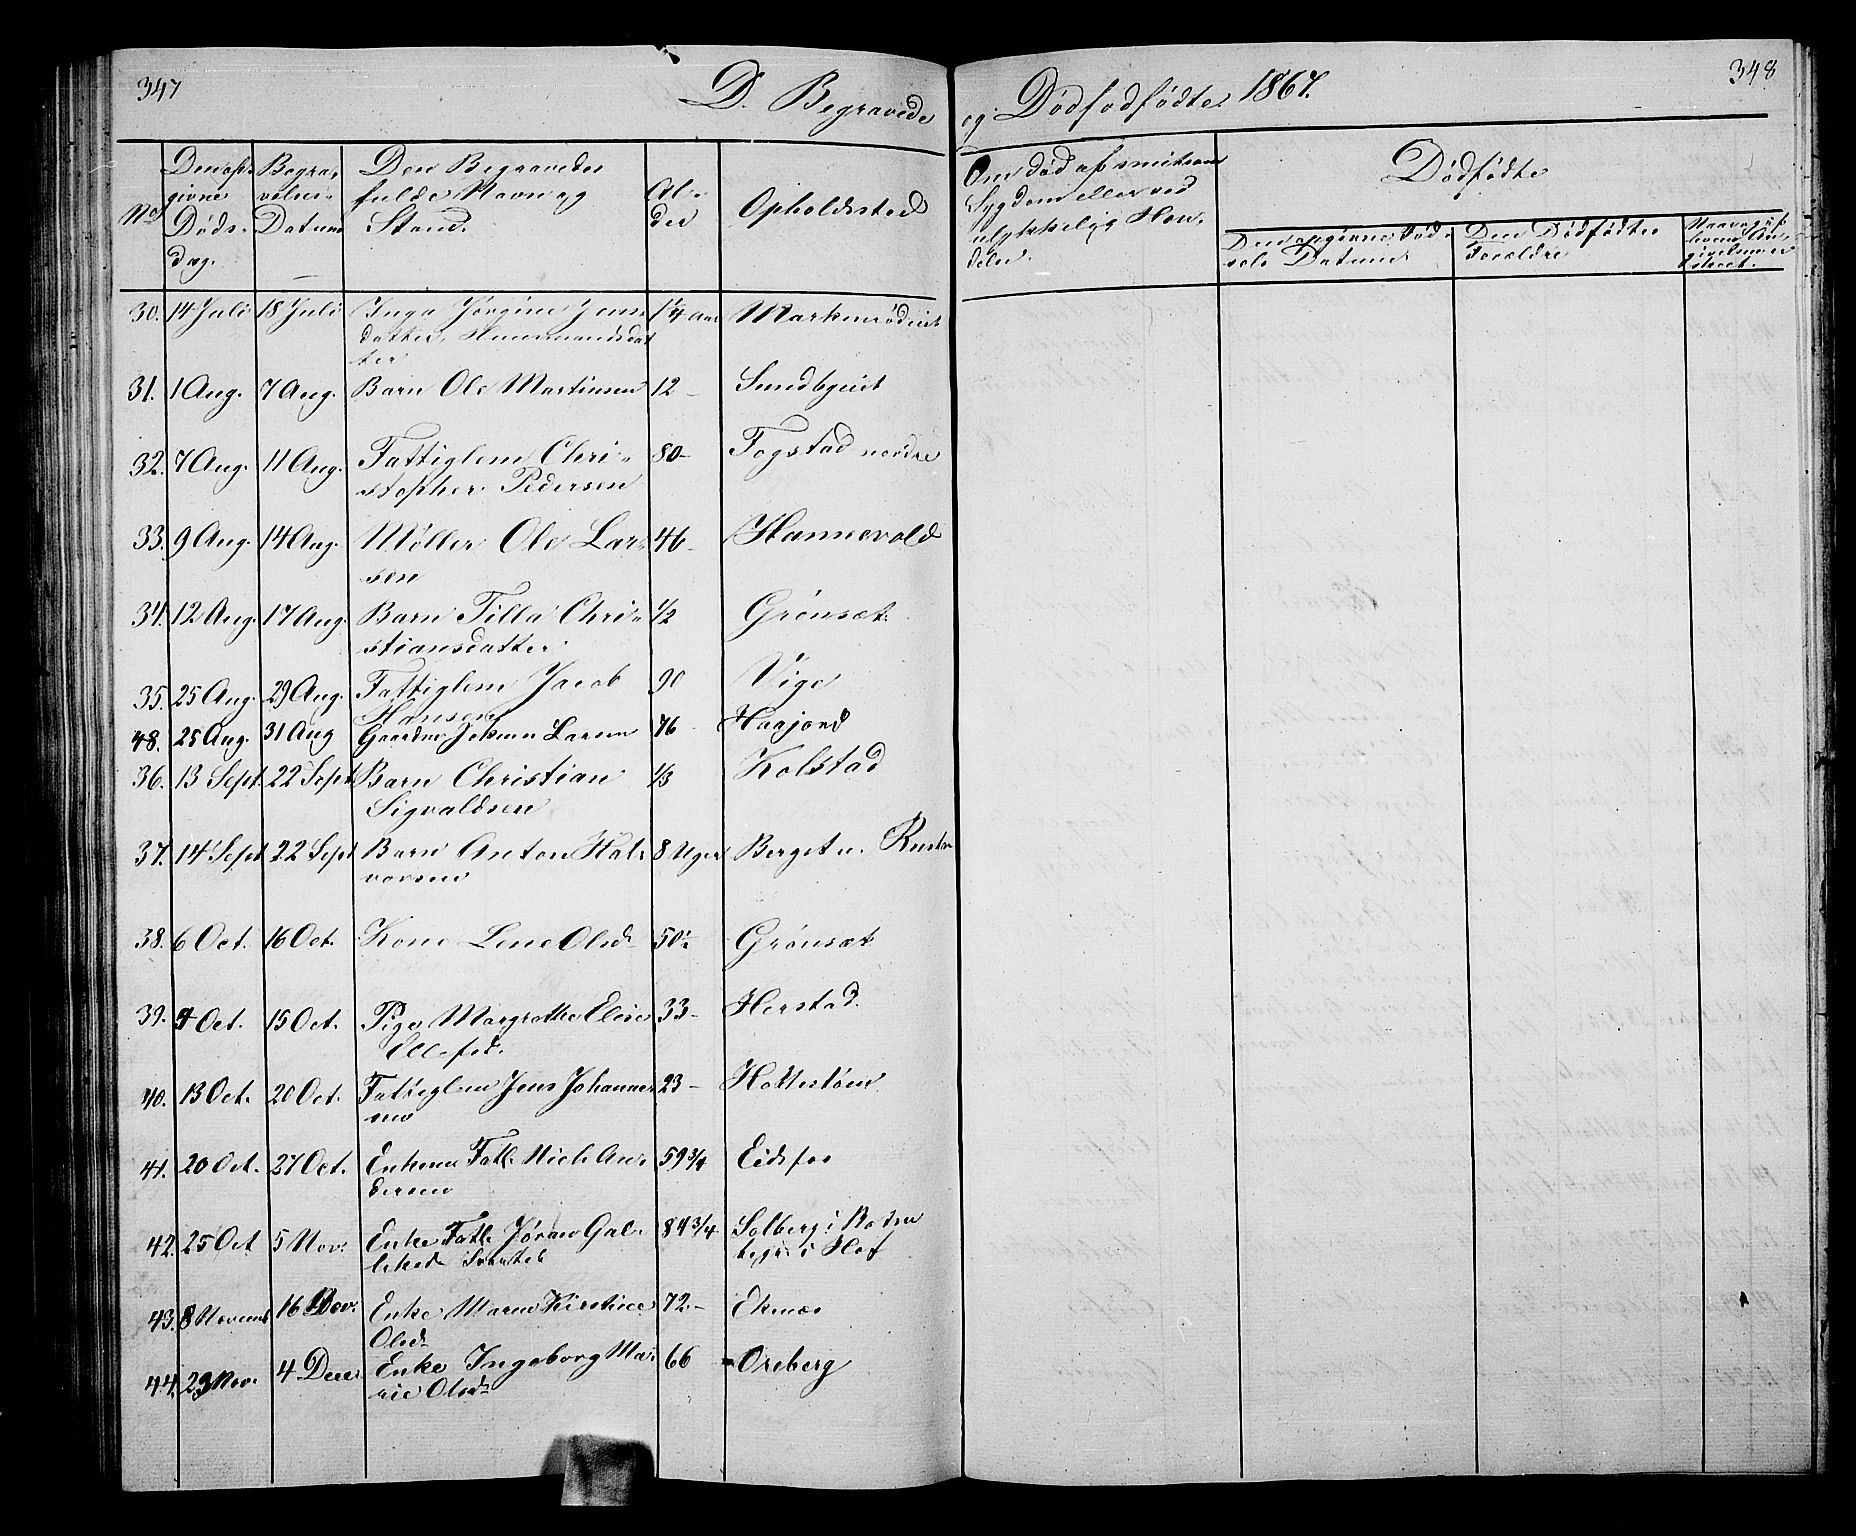 347
348
D. Begravede og Dødfødfødte 1867.
No
Den opgivne Døds-dag.
Begravelses-Datum
Den Begravedes fulde Navn og Stand.
Alder
Opholdssted
Om død af smitsom Sygdom eller ved ulykkelig Hændelse.
Dødfødte
Den opgivne Fødsels Datum
Den Dødfødtes Forældre
30. 14 Juli 18 Juli Inga Jørgine Jensdatter, Huusmandsdatter 1 1/4 Aar
31. 1 Aug. 7 Aug. Barn Ole Martinsen 12 - Sundbyeiet
32. 7 Aug. 11 Aug. Fattiglem Christopher Pedersen 80 - Fogstad nordre
33. 9 Aug. 14 Aug. Møller Ole Larsen 46 - Hannevold
34. 12 Aug. 17 Aug. Barn Tilla Christiansdatter 1/2 Grønsæt
35. 25 Aug. 29 Aug. Fattiglem Jacob Hansen 90 Vige
48. 25 Aug. 31 Aug Gaardm. Johan Larsen 76 Haajord
36. 13 Sept. 22 Sept Barn Christian Sigvaldsen 1/3 Kolstad
37. 14 Sept 22 Sept Barn Anton Halvorsen 8 Uger Berget u.
38. 6 Oct. 16 Oct. Kone Lene Olsd. 50 1/2 Grønsæt
39. 9 Oct. 15 Oct. Pige Margrethe Elise Ellefsd. 33 - Herstad
40. 13 Oct. 20 Oct. Fattiglem Jens Johannesen 23 -
41. 20 Oct. 27 Oct. Enkem Fatl. Niels Andersen 59 3/4 Eidsfos
42. 25 Oct 5 Nov. Enke Fatl. 84 3/4 Solberg i i Hof
43. 8 Novemb 16 Nov. Enke Maren Kirstine Olsd. 72 - Eknes
44. 29 Nov. 4 Decer Enke Ingeborg Marie Olsd. 66 - Oreberg